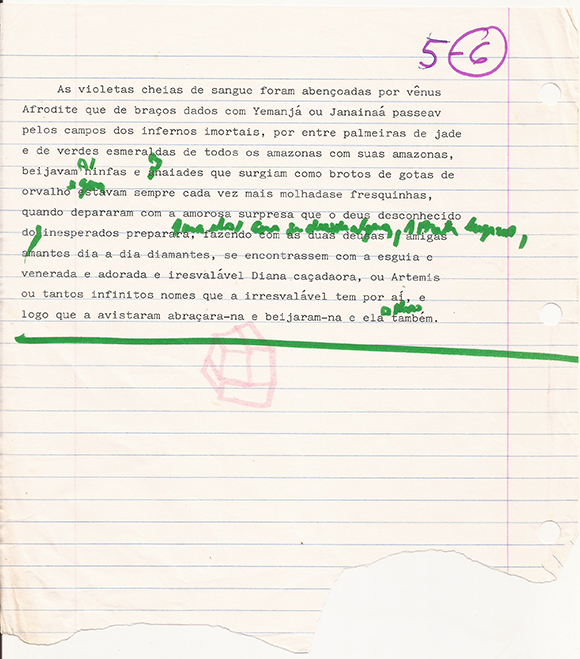 5-6
As violetas cheias de sangue foram abençoadas por vênus
Afrodite que de braços dados com Yemanjá ou Janainaá passeav
pelos campos dos infernos imortais, por entre palmeiras de jade
e de verdes esmeraldas de todos os amazonas com suas amazonas,
beijavam ninfas e anaiades que surgiam como brotos de gotas de
orvalho estavam sempre cada vez mais molhadase fresquinhas,
quando depararam com a amorosa surpresa que o deus desconhecido
do inesperados preparara, fazendo com as duas deusas, amigas
amantes dia a dia diamantes, se encontrassem com a esguia e
venerada e adorada e iresvalável Diana caçadaora, ou Artemis
ou tantos infinitos nomes que a irresvalável tem por aí, e
logo que a avistaram abraçara-na e beijaram-na e ela também.